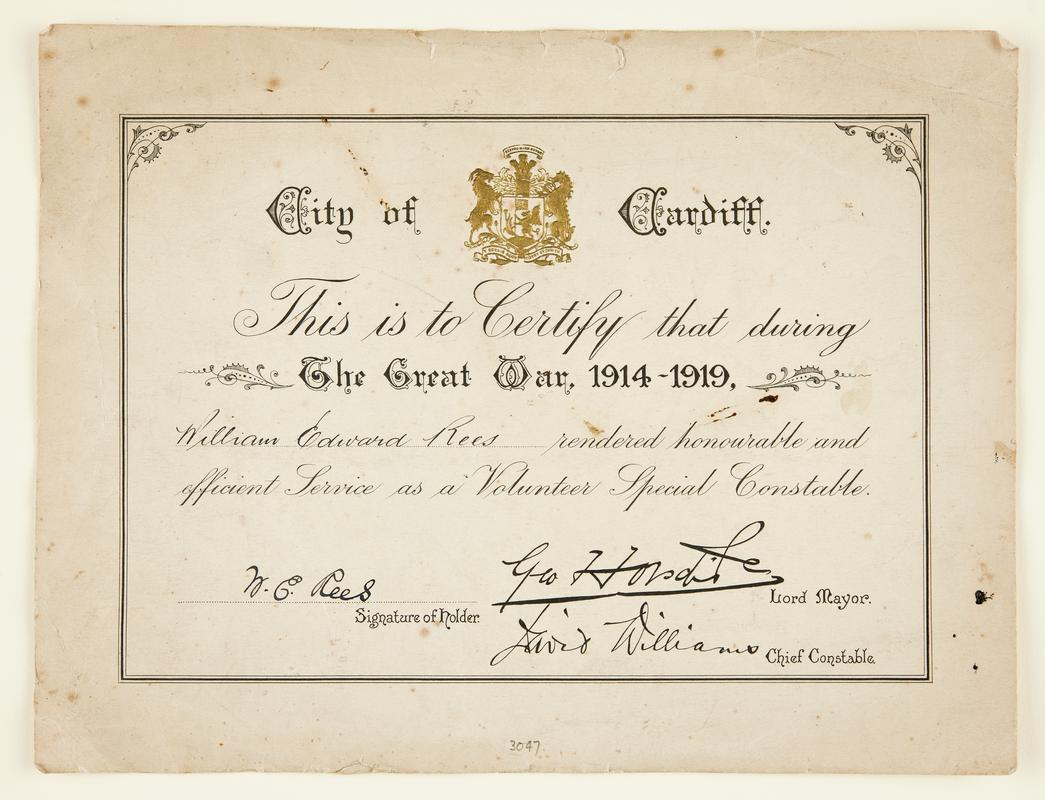 City of Cardiff.
This is to Certify that during
The Great War, 1914-1919,
William Edward Rees rendered honourable and
efficient Service as a Volunteer Special Constable.
W. E. Rees
Signature of Holder.
Geo
Lord Mayor.
David Williams
Chief Constable.
3047